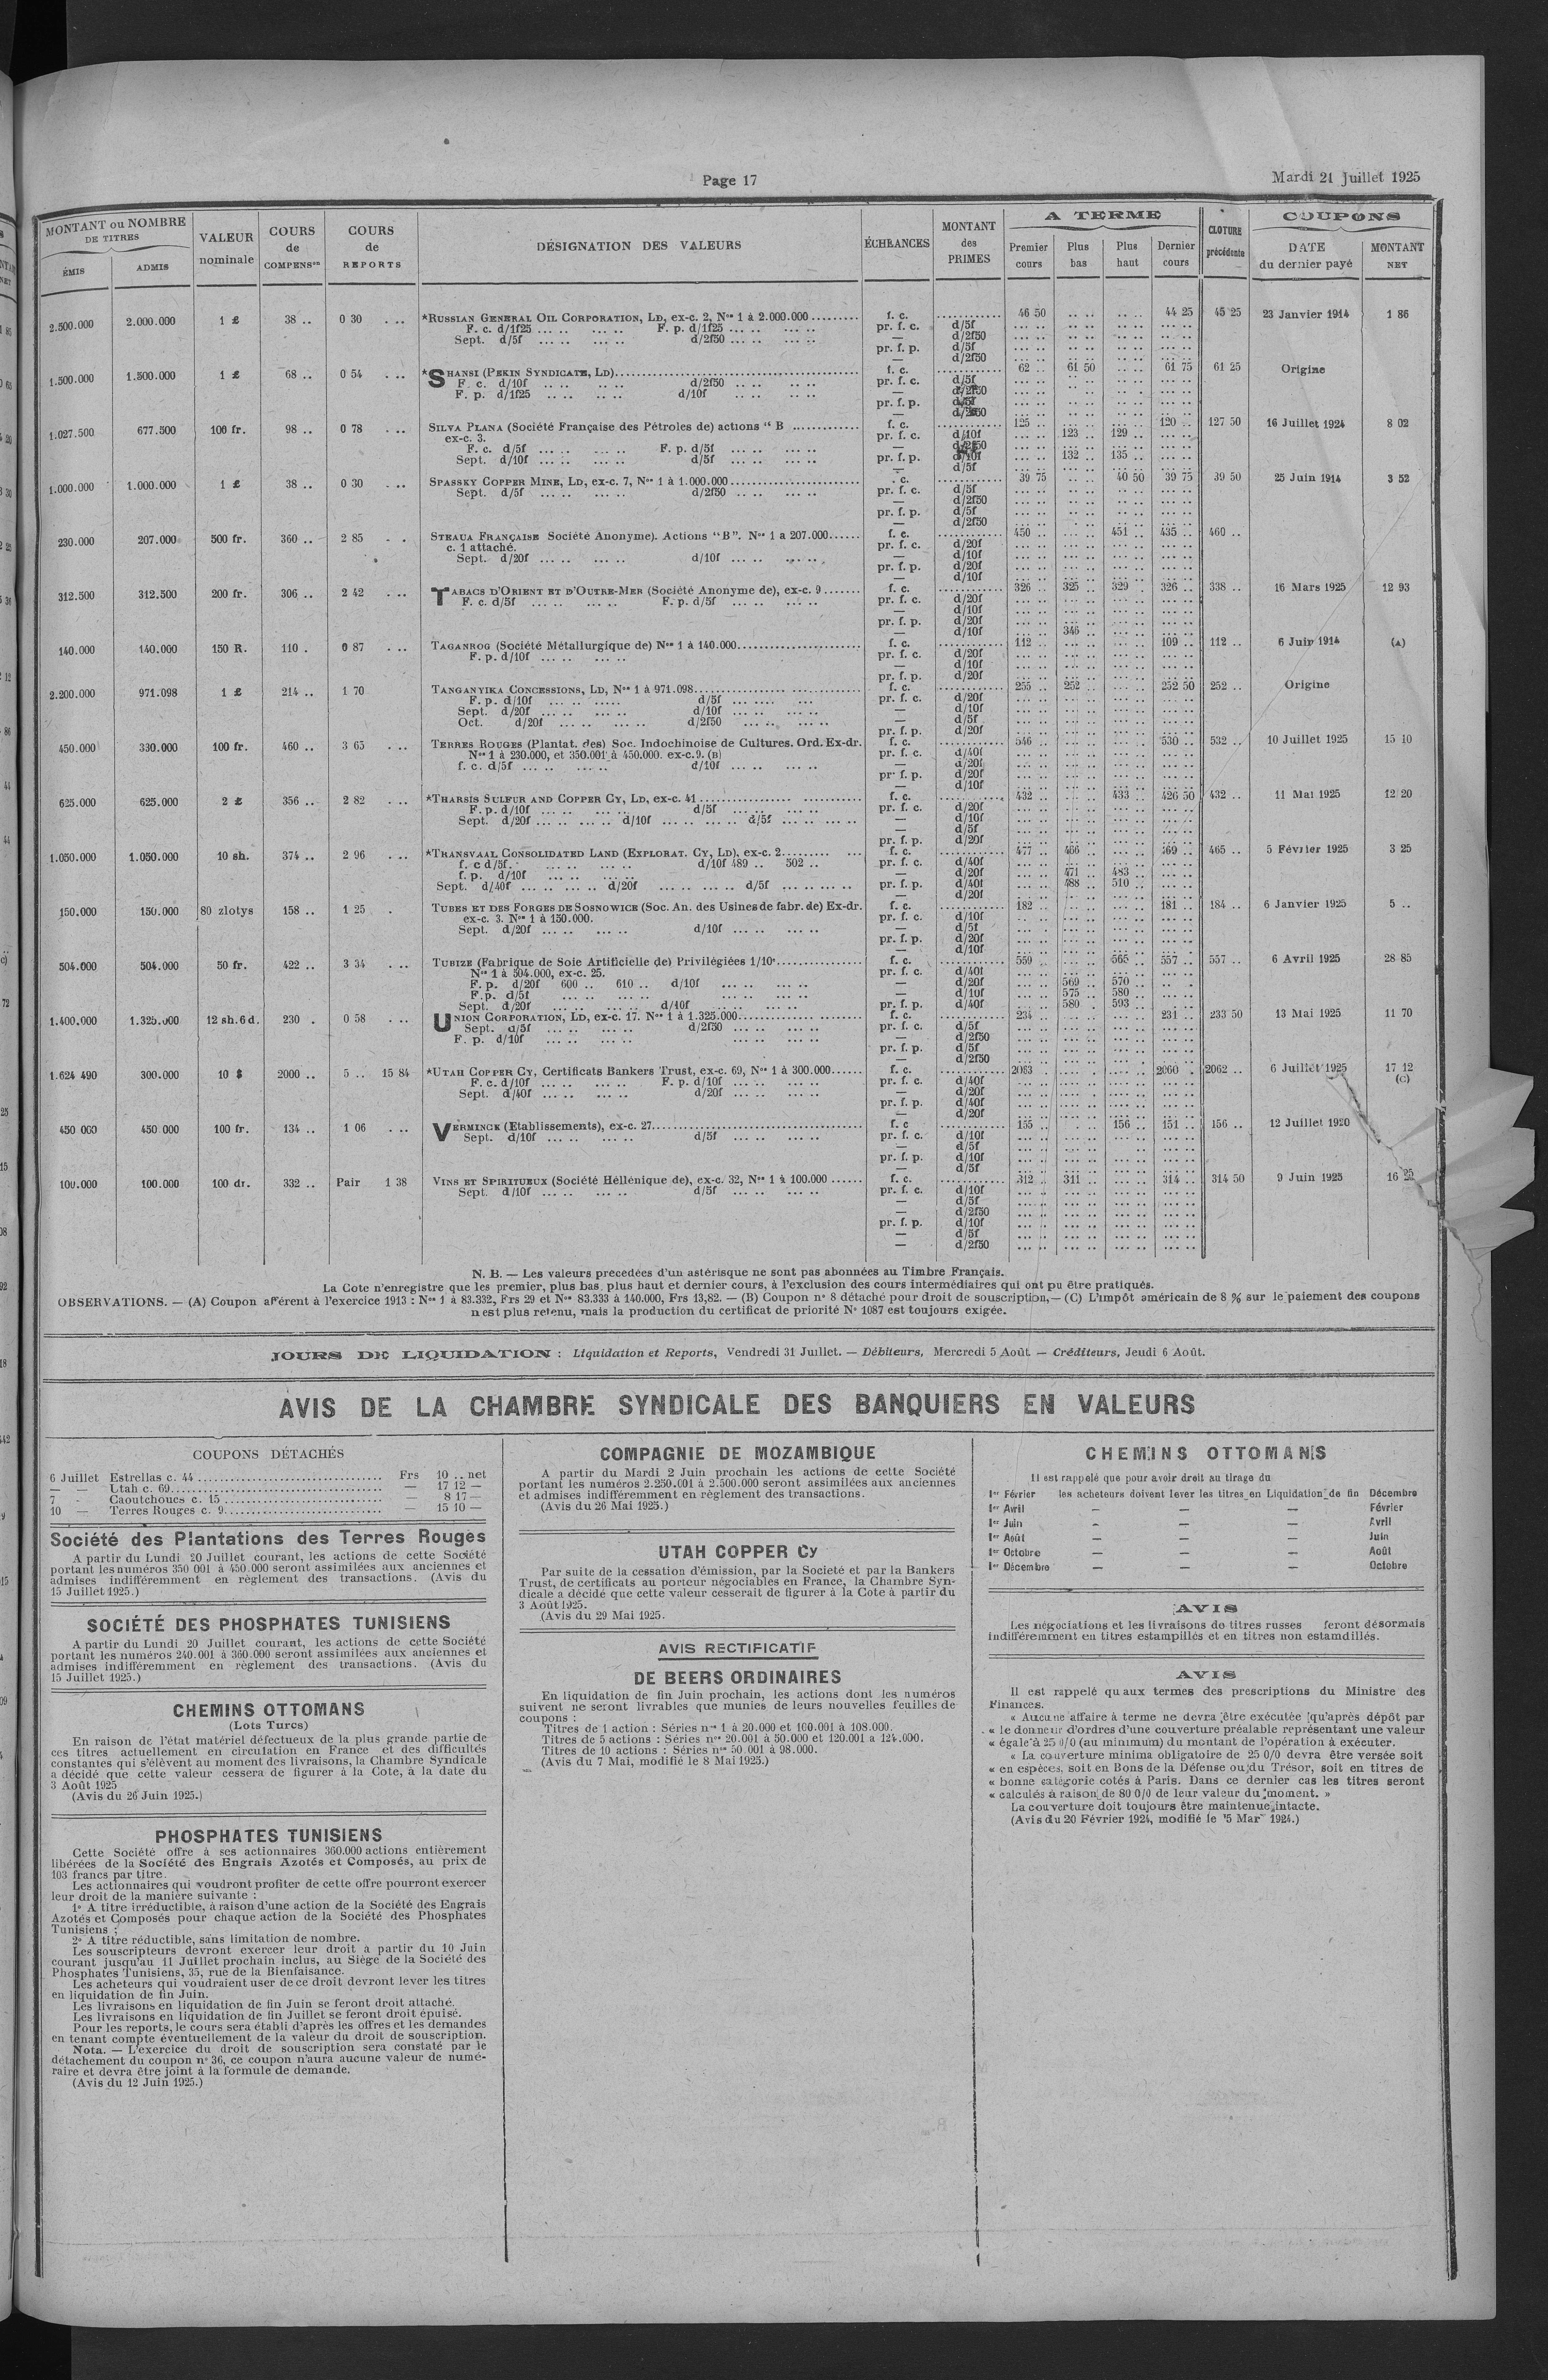 Page 17
Mardi 21 Juillet 1925
MONTANT ou NOMBRE DE TITRES
ÉMIS
ADMIS
VALEUR nominale
COURS de COMPENSon
COURS de REPORTS
DÉSIGNATION DES VALEURS
ÉCHÉANCES
MONTANT des PRIMES
A TERME
Premier cours
Plus bas
Plus haut
Dernier cours
CLOTURE précédente
COUPONS
DATE du dernier payé
MONTANT NET
2.500.000 2.000.000 1 £ 38 .. 0 30 . .. *RUSSIAN GENERAL OIL CORPORATION, LD, ex-c. 2, Nos 1 à 2.000.000 f. c. 46 50 44 25 45 25 23 Janvier 1914 1 86
F. c. d/1f25 ... .. ... .. F. p. d/1f25 ... .. ... .. pr. f. c. d/5f
Sept. d/5f ... .. ... .. d/2f50 ... .. ... .. — d/2f50
pr. f. p. d/5f
— d/2f50
1.500.000 1.500.000 1 £ 68 .. 0 54 . .. *SHANSI (PEKIN SYNDICATE, LD) f. c. 62 .. 61 50 61 75 61 25 Origine
F. c. d/10f .. .. .. .. d/2f50 .. .. .. .. pr. f. c. d/5f
F. p. d/1f25 .. .. .. .. d/10f .. .. .. .. — d/2f50
pr. f. p. d/5f
— d/2f50
1.027.500 677.500 100 fr. 98 .. 0 78 . .. SILVA PLANA (Société Française des Pétroles de) actions “ B f. c. 125 .. 120 .. 127 50 16 Juillet 1924 8 02
ex-c. 3. pr. f. c. d/10f 123 .. 129 ..
F. c. d/5f ... .. ... .. F. p. d/5f ... .. ... .. — d/2f50
Sept. d/10f ... .. ... .. d/5f ... .. ... .. pr. f. p. d/10f 132 .. 135 ..
— d/5f
1.000.000 1.000.000 1 £ 38 .. 0 30 . .. SPASSKY COPPER MINE, LD, ex-c. 7, Nos 1 à 1.000.000 . c. 39 75 40 50 39 75 39 50 25 Juin 1914 3 52
Sept. d/5f ... .. ... .. d/2f50 .. .. ... .. pr. f. c. d/5f
— d/2f50
pr. f. p. d/5f
— d/2f50
230.000 207.000 500 fr. 360 .. 2 85 . . STEAUA FRANÇAISE Société Anonyme). Actions “B”. Nos 1 a 207.000 f. c. 450 .. 451 .. 435 .. 460 ..
c. 1 attaché. pr. f. c. d/20f
Sept. d/20f ... .. ... .. d/10f ... .. ... .. — d/10f
pr. f. p. d/20f
— d/10f
312.500 312.500 200 fr. 306 .. 2 42 . .. TABACS D'ORIENT ET D'OUTRE-MER (Société Anonyme de), ex-c. 9 f. c. 326 .. 325 .. 329 . 326 .. 338 .. 16 Mars 1925 12 93
F. c. d/5f ... .. ... .. F. p. d/5f ... .. ... .. pr. f. c. d/20f
— d/10f
pr. f. p. d/20f
— d/10f 346 ..
140.000 140.000 150 R. 110 . 0 87 . .. TAGANROG (Société Métallurgique de) Nos 1 à 140.000 f. c. 112 .. 109 .. 112 .. 6 Juin 1914 (A)
F. p. d/10f ... .. ... .. pr. f. c. d/20f
— d/10f
pr. f. p. d/20f
2.200.000 971.098 1 £ 214 .. 1 70 TANGANYIKA CONCESSIONS, LD, Nos 1 à 971.098 f. c. 255 .. 252 .. 252 50 252 .. Origine
F. p. d/10f ... .. ..... d/5f ... .... ... pr. f. c. d/20f
Sept. d/20f ... .. ... .. d/10f ... .. ... .. — d/10f
Oct. d/20f ... .. ... .. d/2f50 ... .. ... .. — d/5f
pr. f. p. d/20f
450.000 330.000 100 fr. 460 .. 3 65 . .. TERRES ROUGES (Plantat. des) Soc. Indochinoise de Cultures. Ord. Ex-dr. f. c. 546 .. 530 .. 532 .. 10 Juillet 1925 15 10
Nos 1 à 230.000, et 350.001 à 450.000. ex-c.9. (B) pr. f. c. d/40f
f. c. d/5f ... .. ... .. d/10f ... .. ... .. — d/20f
pr. f. p. d/20f
— d/10f
625.000 625.000 2 £ 356 .. 2 82 . .. *THARSIS SULFUR AND COPPER CY, LD, ex-c. 41 f. c. 432 .. 433 .. 426 50 432 .. 11 Mai 1925 12 20
F. p. d/10f ... .. ... .. d/5f ... .. ... .. pr. f. c. d/20f
Sept. d/20f ... .. ... .. d/10f ... .. ... .. d/5f ... .. ... .. — d/10f
— d/5f
pr. f. p. d/20f
1.050.000 1.050.000 10 sh. 374 .. 2 96 . .. *TRANSVAAL CONSOLIDATED LAND (EXPLORAT. CY, LD), ex-c. 2 f. c. 477 .. 466 .. 469 .. 465 .. 5 Février 1925 3 25
f. c d/5f. ... .. ... .. d/10f 489 .. 502 .. pr. f. c. d/40f
f. p. d/10f ... .. ... .. — d/20f 471 .. 483 ..
Sept. d/40f ... .. ... .. d/20f ... .. ... .. d/5f ... .. ... .. pr. f. p. d/40f 488 .. 510 ..
— d/20f
150.000 150.000 80 zlotys 158 .. 1 25 . TUBES ET DES FORGES DE SOSNOWICE (Soc. An. des Usines de fabr. de) Ex-dr. f. c. 182 .. 181 .. 184 .. 6 Janvier 1925 5 ..
ex-c. 3. Nos 1 à 150.000. pr. f. c. d/10f
Sept. d/20f ... .. ... .. d/10f ... .. ... .. — d/5f
pr. f. p. d/20f
— d/10f
504.000 504.000 50 fr. 422 .. 3 34 . .. TUBIZE (Fabrique de Soie Artificielle de) Privilégiées 1/10e f. c. 559 .. 565 .. 557 .. 557 .. 6 Avril 1925 28 85
Nos 1 à 504.000, ex-c. 25. pr. f. c. d/40f
F. p. d/20f 600 .. 610 .. d/10f ... .. ... .. — d/20f 569 .. 570 ..
F.p. d/5f ... .. ... .. ... .. ... .. — d/10f 575 .. 580 ..
Sept. d/20f ... .. ... .. d/40f ... .. ... .. pr. f. p. d/40f 580 .. 593 ..
1.400.000 1.325.000 12 sh. 6 d. 230 . 0 58 . .. UNION CORPORATION, LD, ex-c. 17. Nos 1 à 1.325.000 f. c. 234 .. 231 .. 233 50 13 Mai 1925 11 70
Sept. d/5f ... .. ... .. d/2f50 ... .. ... .. pr. f. c. d/5f
F. p. d/10f ... .. ... .. ... .. ... .. — d/2f50
pr. f. p. d/5f
— d/2f50
1.624 490 300.000 10 $ 2000 .. 5 .. 15 84 *UTAH COPPER CY, Certificats Bankers Trust, ex-c. 69, Nos 1 à 300.000 f. c. 2083 .. 2060 . 2062 .. 6 Juillet 1925 17 12
(C)
F. c. d/10f ... .. ... .. F. p. d/10f ... .. ... .. pr. f. c. d/40f
Sept. d/40f ... .. ... .. d/20f ... .. ... .. — d/20f
pr. f. p. d/40f
— d/20f
450 000 450 000 100 fr. 134 .. 1 06 . .. VERMINCK (Etablissements), ex-c. 27 f. c 155 .. 156 .. 151 .. 156 .. 12 Juillet 1920
Sept. d/10f ... .. ... .. d/5f ... .. ... .. pr. f. c. d/10f
— d/5f
pr. f. p. d/10f
— d/5f
100.000 100.000 100 dr. 332 .. Pair 1 38 VINS ET SPIRITUEUX (Société Héllénique de), ex-c. 32, Nos 1 à 100.000 f. c. 312 .. 311 .. 314 .. 314 50 9 Juin 1925 16 25
Sept. d/10f ... .. ... .. d/5f ... .. ... .. pr. f. c. d/10f
— d/5f
— d/2f50
pr. f. p. d/10f
— d/5f
— d/2f50
N. B. — Les valeurs precedées d'un astérisque ne sont pas abonnées au Timbre Français.
La Cote n'enregistre que les premier, plus bas, plus haut et dernier cours, à l'exclusion des cours intermédiaires qui ont pu être pratiqués.
OBSERVATIONS. — (A) Coupon afférent à l'exercice 1913 : Nos 1 à 83.332, Frs 29 et Nos 83.333 à 140.000, Frs 13,82. — (B) Coupon n° 8 détaché pour droit de souscription,— (C) L'impôt américain de 8 % sur le paiement des coupons
n'est plus retenu, mais la production du certificat de priorité N° 1087 est toujours exigée.
JOURS DE LIQUIDATION : Liquidation et Reports, Vendredi 31 Juillet. — Débiteurs, Mercredi 5 Août — Créditeurs, Jeudi 6 Août.
AVIS DE LA CHAMBRE SYNDICALE DES BANQUIERS EN VALEURS
COUPONS DÉTACHÉS
6 Juillet Estrellas c. 44 Frs 10 .. net
— — Utah c. 69 — 17 12 —
7 - Caoutchoucs c. 15 — 8 17 —
10 — Terres Rouges c. 9 — 15 10 —
Société des Plantations des Terres Rouges
A partir du Lundi 20 Juillet courant, les actions de cette Société
portant les numéros 350 001 à 450.000 seront assimilées aux anciennes et
admises indifféremment en règlement des transactions. (Avis du
15 Juillet 1925.)
SOCIÉTÉ DES PHOSPHATES TUNISIENS
A partir du Lundi 20 Juillet courant, les actions de cette Société
portant les numéros 240.001 à 360.000 seront assimilées aux anciennes et
admises indifféremment en règlement des transactions. (Avis du
15 Juillet 1925.)
CHEMINS OTTOMANS
(Lots Turcs)
En raison de l'état matériel défectueux de la plus grande partie de
ces titres actuellement en circulation en France et des difficultés
constantes qui s'élèvent au moment des livraisons, la Chambre Syndicale
a décidé que cette valeur cessera de figurer à la Cote, à la date du
3 Août 1925
(Avis du 26 Juin 1925.)
PHOSPHATES TUNISIENS
Cette Société offre à ses actionnaires 360.000 actions entièrement
libérées de la Société des Engrais Azotés et Composés, au prix de
103 francs par titre.
Les actionnaires qui voudront profiter de cette offre pourront exercer
leur droit de la manière suivante :
1° A titre irréductible, à raison d'une action de la Société des Engrais
Azotés et Composés pour chaque action de la Société des Phosphates
Tunisiens ;
2° A titre réductible, sans limitation de nombre.
Les souscripteurs devront exercer leur droit à partir du 10 Juin
courant jusqu'au 11 Juillet prochain inclus, au Siège de la Société des
Phosphates Tunisiens, 35, rue de la Bienfaisance.
Les acheteurs qui voudraient user de ce droit devront lever les titres
en liquidation de fin Juin.
Les livraisons en liquidation de fin Juin se feront droit attaché.
Les livraisons en liquidation de fin Juillet se feront droit épuisé.
Pour les reports, le cours sera établi d'après les offres et les demandes
en tenant compte éventuellement de la valeur du droit de souscription.
Nota. — L'exercice du droit de souscription sera constaté par le
détachement du coupon n° 36, ce coupon n'aura aucune valeur de numé-
raire et devra être joint à la formule de demande.
(Avis du 12 Juin 1925.)
COMPAGNIE DE MOZAMBIQUE
A partir du Mardi 2 Juin prochain les actions de cette Société
portant les numéros 2.250.001 à 2.500.000 seront assimilées aux anciennes
et admises indifféremment en règlement des transactions.
(Avis du 26 Mai 1925.)
UTAH COPPER Cy
Par suite de la cessation d'émission, par la Societé et par la Bankers
Trust, de certificats au porteur négociables en France, la Chambre Syn-
dicale a décidé que cette valeur cesserait de figurer à la Cote à partir du
3 Août 1925.
(Avis du 29 Mai 1925.
AVIS RECTIFICATIF
DE BEERS ORDINAIRES
En liquidation de fin Juin prochain, les actions dont les numéros
suivent ne seront livrables que munies de leurs nouvelles feuilles de
coupons :
Titres de 1 action : Séries nos 1 à 20.000 et 100.001 à 108.000.
Titres de 5 actions : Séries nos 20.001 à 50.000 et 120.001 a 124.000.
Titres de 10 actions : Séries nos 50 001 à 98.000.
(Avis du 7 Mai, modifié le 8 Mai 1925.)
CHEMINS OTTOMANS
Il est rappelé que pour avoir droit au tirage du
1er Février les acheteurs doivent lever les titres en Liquidation de fin Décembre
1er Avril — — — Février
1er Juin — — — Avril
1er Août — — — Juin
1er Octobre — — — Août
1er Décembre — — — Octobre
AVIS
Les négociations et les livraisons de titres russes feront désormais
indifféremment en titres estampillés et en titres non estamdillés.
AVIS
Il est rappelé qu aux termes des prescriptions du Ministre des
Finances.
« Aucune affaire à terme ne devra être exécutée qu'après dépôt par
« le donneur d'ordres d'une couverture préalable représentant une valeur
« égale à 25 0/0 (au minimum) du montant de l'opération à exécuter.
« La couverture minima obligatoire de 25 0/0 devra être versée soit
« en espèces, soit en Bons de la Défense ou du Trésor, soit en titres de
« bonne catégorie cotés à Paris. Dans ce dernier cas les titres seront
« calculés à raison de 80 0/0 de leur valeur du moment. »
La couverture doit toujours être maintenue intacte.
(Avis du 20 Février 1924, modifié le 15 Mar 1924.)